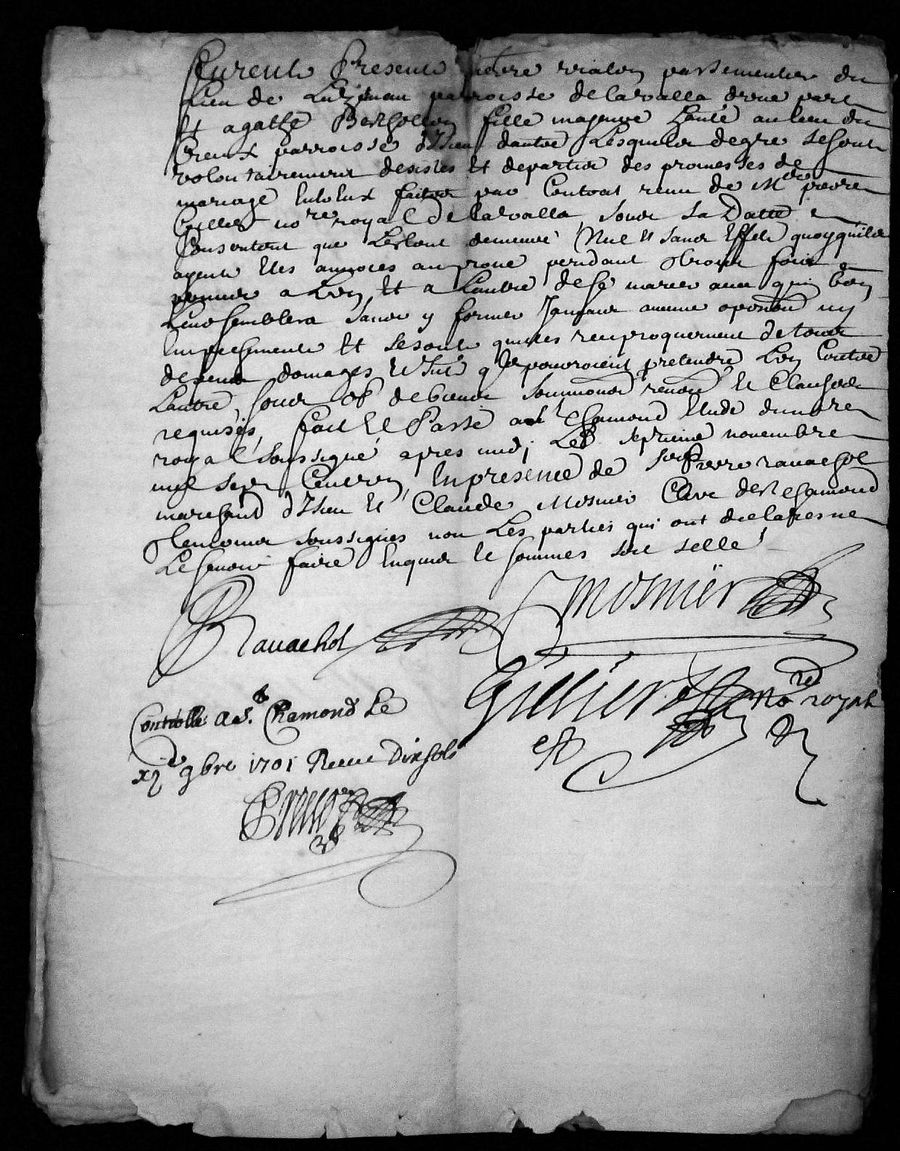 Furent Presents pierre vialon passementier du
Lieu de Luzernau parroisse de lavalla d'une part
Et agathe Berthollon fille majeure dudit au lieu du
Creux parroisse d'Izieu d'autre Lesquelz de gre se sont
volontairement desistes Et departis des promesses de
mariage Entr'Eux faittes par Contrat receu de Me pierre
Gillier nore royal de lavalla sous sa Datte
Consentent que Led. soit demeure Nul Et sans Effets quoyquilz
ayent Ete annoces au prone pendant trois fois
permis a Lun Et a Lautre de se marier avec qui bon
Leur semblera sans y former Jamais aucune oposition ny
Empechements Et se sont quittes reciproquement de tous
depens domages Et Int. qu'ils pourroient pretendre Lun Contre
Lautre sous de biens soumissions renon. Et Clauses
requises, fait Et Passé a St Chamond Etude du nore
royal Soussigné apres midi Le septieme novembre
mil sept Cent un, En presence de sr pierre ravachol
marchand d'Izieu Et Claude Mosnier Clerc de St Chamond
temoins soussignes non Les parties qui ont declare ne
Le scavoir faire Enquis et sommes selle
Ravachol
Mosnier
Gillier nore royal
Controllé a St Chamond Le
xije 9bre 1701 Receu Dix sols